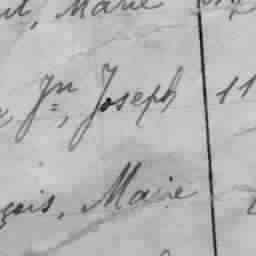 , Marie
Jn, Joseph 11
çois, Marie